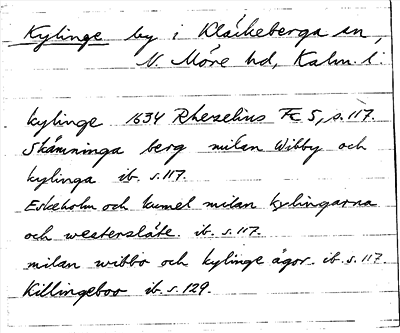 Kylinge by i Kläckeberga sn,
N. Möre hd, Kalm. l.
kylinge 1634 Rhezelius Fc 5, s. 117.
Skämninga berg milan Wibby och
kylinga ib. s. 117.
och kumel milan kylingarna
och weetersläte ib. s. 117.
milan wibbo och kylinge ägor ib. s. 117.
Killingeboo ib. s. 129.